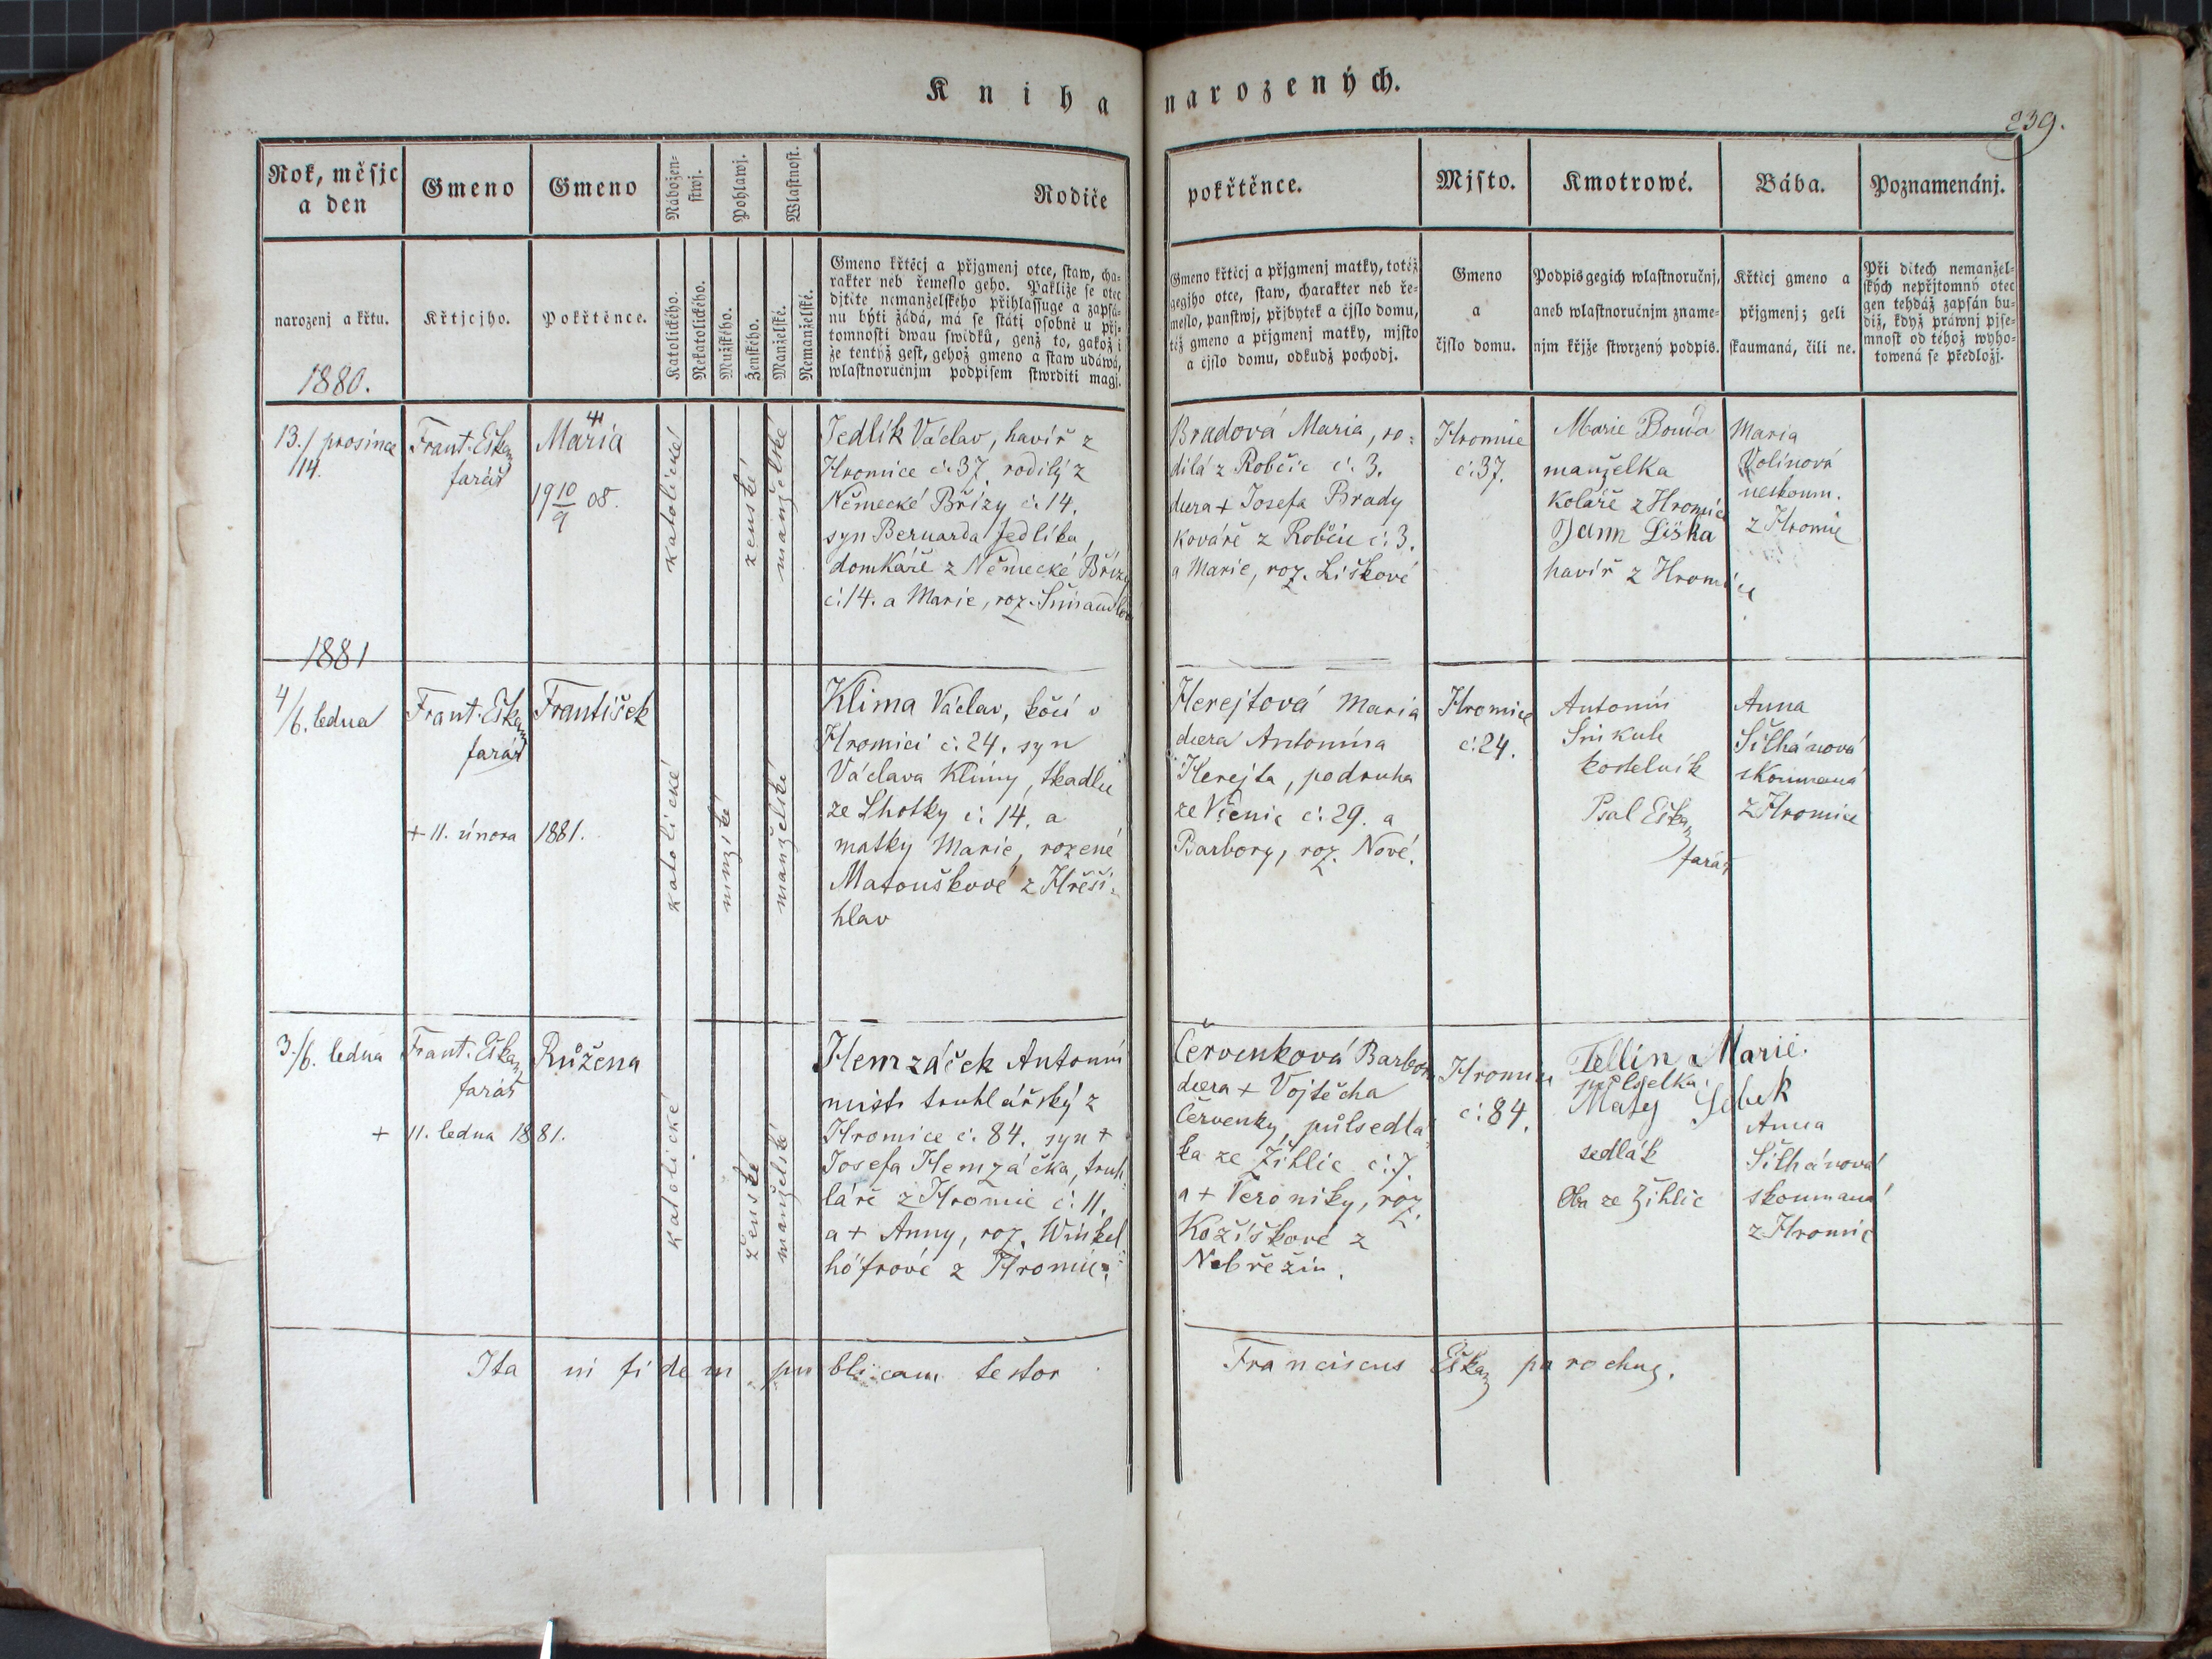 Kniha narozených.
239.
Rok, měsjc a den
Gmeno
Gmeno
Nábožen-
stwj.
Pohlawj.
Wlastnost.
Rodiče
pokřtěnce.
Mjsto.
Kmotrowé.
Bába.
Poznamenánj.
narozenj a křtu.
1880.
Křtjcjho.
Pokřtěnce.
Katolického.
Nekatolického.
Mužského.
Ženského.
Manželské.
Nemanželské.
Gmeno křtěcj a přjgmenj otce, staw, cha-
rakter neb řemeslo geho. Pakliže se otec
djtěte nemanželského přihlassuge a zapsá-
nu býti žádá, má se státi osobně u přj-
tomnosti dwau swědků, genž to, gakož i
že tentýž gest, gehož gmeno a staw udáwá,
wlastnoručnjm podpisem stwrditi magj.
Gmeno křticj a přjgmenj matky, totéž
gegjho otce, staw, charakter neb ře-
meslo, panstwj, přjbytek a čjslo domu,
též gmeno a přjgmenj matky, mjsto
a čjslo domu, odkudž pochodj.
Gmeno
a
čjslo domu.
Podpis gegich wlastnoručnj,
aneb wlastnoručnjm zname-
njm křjže stwrzený podpis.
Křticj gmeno a
přjgmenj; geli
skaumaná, čili ne.
Při dětech nemanžel-
ských nepřjtomný otec
gen tehdáž zapsán bu-
diž, když práwnj pjse-
mnost od téhož wyho-
towená se předložj.
13./ prosince
/14.
Frant. Eška
farář
Maria
19 10/9 08.
katolické
ženské
manželské
Jedlík Václav, havíř z
Hromice č. 37. rodilý z
Německé Břízy č. 14.
syn Bernarda Jedlíka,
domkáře z Německé Břízy
č. 14. a Marie, roz.
Bradová Maria, ro-
dilá z Robčic č. 3.
dcera + Josefa Brady
kováře z Robčic č. 3.
a Marie, roz. Liškové
Hromice
č. 37.
Marie Bouda
manželka
koláře z Hromice
Jann Liška
havíř z Hromice
Maria
Volínová
neskoum.
z Hromic
1881
4/6. ledna
Frant. Eška
farář
František
+ 11. února 1881.
katolické
mužské
manželské
Klima Václav, kočí v
Hromici č. 24. syn
Václava Klímy, tkadlce
ze Lhotky č. 14. a
matky Marie, rozené
Matouškové z Hřeši-
hlav
Herejtová Maria
dcera Antonína
Herejta, podruha
ze Včenic č. 29. a
Barbory, roz. Nové.
Hromice
č. 24.
Antonín
kostelník
Psal Eška
farář
Anna
Šilhánová
skoumaná
z Hromice
3./6. ledna
Frant. Eška
farář
Růžena
+ 11. ledna 1881.
katolické
ženské
manželské
Hemzáček Antonín
mistr truhlářský z
Hromice č. 84. syn +
Josefa Hemzáčka, truh-
láře z Hromic č. 11.
a + Anny, roz. Winkel-
höfrové z Hromic.
Červenková Barbora
dcera + Vojtěcha
Červenky, půlsedlá-
ka ze Žihlic č. 7.
a + Veroniky, roz.
Kožíškové z
Nebřežin.
Hromice
č. 84.
Tellin Marie.
Matěj Sebek
sedlák
Oba ze Žihlic
Anna
Šilhánová
skoumaná
z Hromic
Ita in fidem publicam testor
Franciscus Eška parochus.